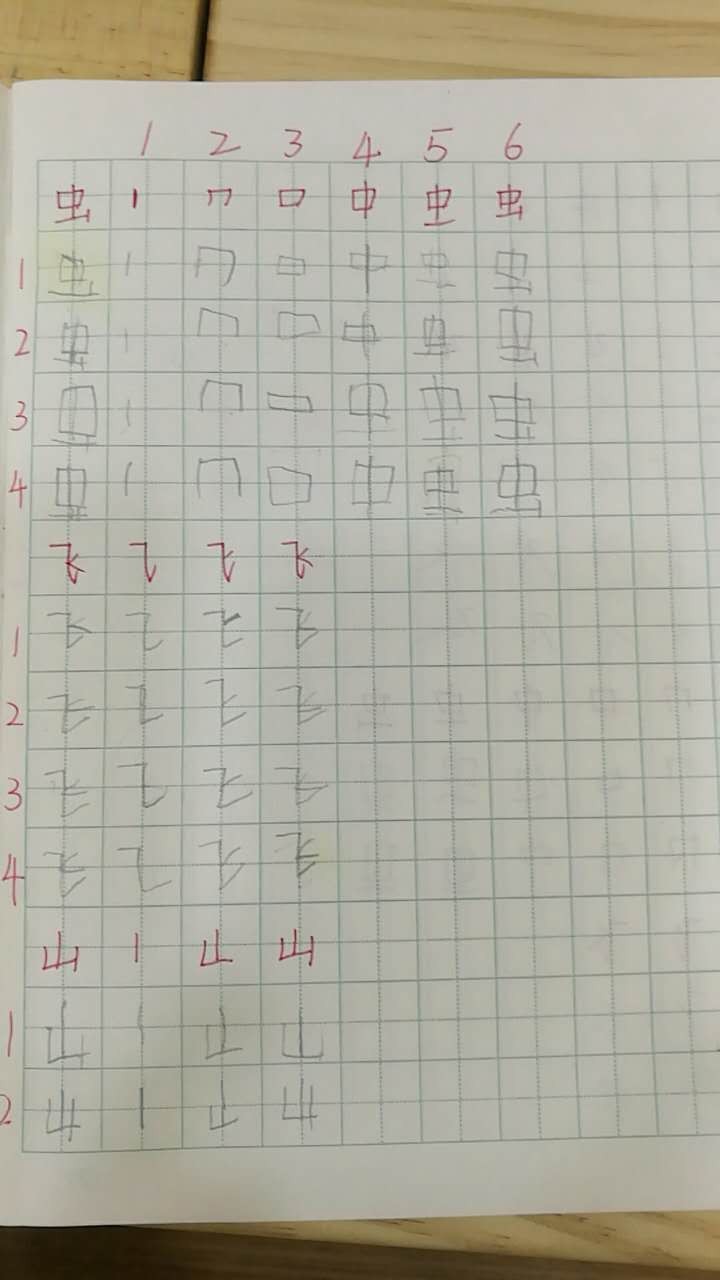 1 2 3 4 5 6
虫 丨 冂 口 中 虫 虫
1 虫 丨 冂 口 中 虫 虫
2 虫 丨 冂 口 中 虫 虫
3 虫 丨 冂 口 中 虫 虫
4 虫 丨 冂 口 中 虫 虫
飞 乁 飞 飞
1 飞 乁 飞 飞
2 飞 乁 飞 飞
3 飞 乁 飞 飞
4 飞 乁 飞 飞
山 丨 山
1 山 丨 山
2 山 丨 山